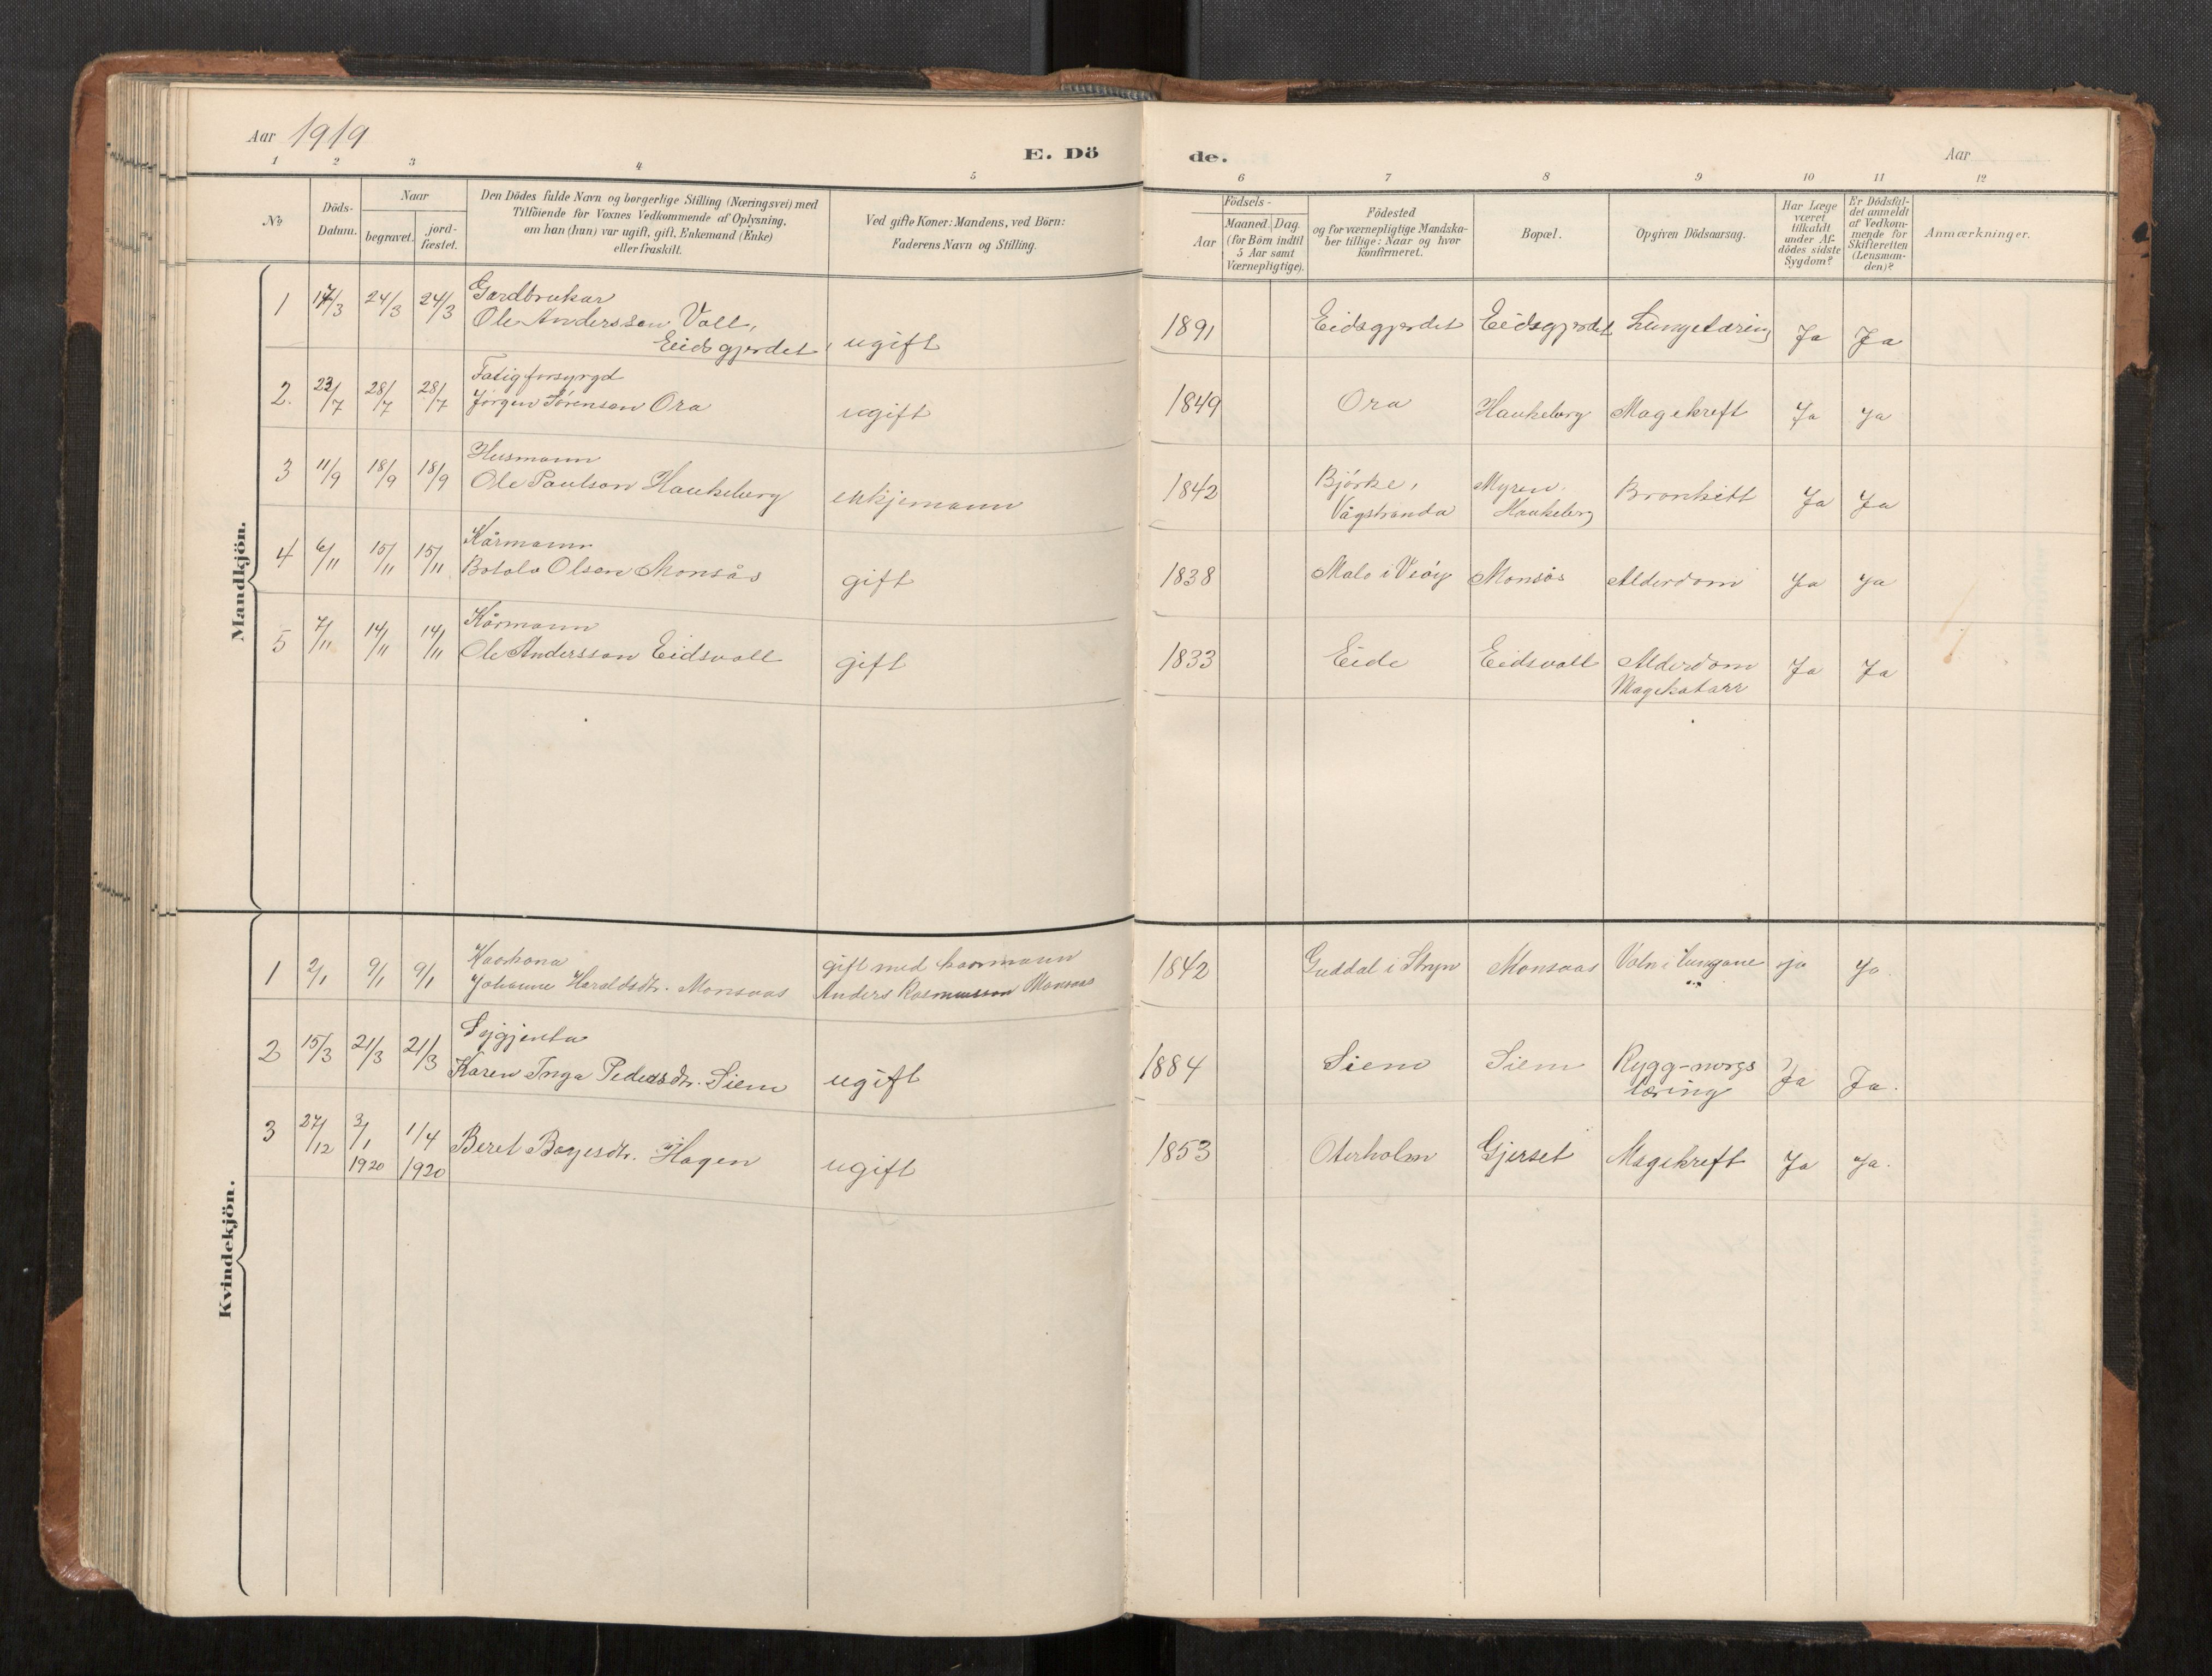 Aar 1919
E. Döde.
Aar
1 2 3 4 5 6 7 8 9 10 11 12
№
Döds-Datum.
Naar
begravet.
jord-fæstet.
Den Dödes fulde Navn og borgerlige Stilling (Næringsvei) med
Tilföiende for Voxnes Vedkommende af Oplysning,
om han (hun) var ugift, gift, Enkemand (Enke)
eller fraskilt.
Ved gifte Koner: Mandens, ved Börn:
Faderens Navn og Stilling.
Födsels-
Aar
Maaned. Dag.
(for Börn indtil
5 Aar samt
Værnepligtige).
Födested
og for værnepligtige Mandska-
ber tillige: Naar og hvor
konfirmeret.
Bopæl.
Opgiven Dödsaarsag.
Har Læge
været
tilkaldt
under Af-
dödes sidste
Sygdom?
Er Dödsfal-
det anmeldt
af Vedkom-
mende for
Skifteretten
(Lensman-
den)?
Anmærkninger.
Mandkjön.
1 17/3 24/3 24/3 Gardbrukar
Ole Andersson Voll,
Eidsgjerdet, ugift 1891 Eidsgjerdet Eidsgjerdet Lungetæring Ja Ja
2. 23/7 28/7 28/7 Fatigforsyrgd
Jørgen Sørenson Ora ugift 1849 Ora Haukeberg Magekreft Ja Ja
3 11/9 18/9 18/9 Husmann
Ole Paulson Haukeberg enkjemann 1842 Bjørke, Myren, Bronkitt Ja Ja
Vågstranda Haukeberg
4 6/11 15/11 15/11 Kårmann
Botolv Olsen Monsås gift 1838 Malo i Veøy Monsås Alderdom Ja Ja
5 7/11 14/11 14/11 Kårmann
Ole Andersson Eidsvoll gift 1833 Eide Eidsvoll Alderdom Ja Ja
Magekatarr
Kvindekjön.
1 2/1 9/1 9/1 Kaarkona gift med kaarmann
Johanne Haraldsdtr. Monsaas Anders Rasmusson Monsaas 1842 Guddal i Stryn Monsaas Vatn i lungane ja Ja
2 15/3 21/3 21/3 Sygjenta
Karen Inga Pedersdtr. Siem ugift 1884 Siem Siem Rygg-mergs Ja Ja.
tæring
3 27/12 3/1 1920 1/4 1920 Beret Bøyesdtr. Hagen ugift 1853 Oterholm Gjerset Magekreft Ja Ja.